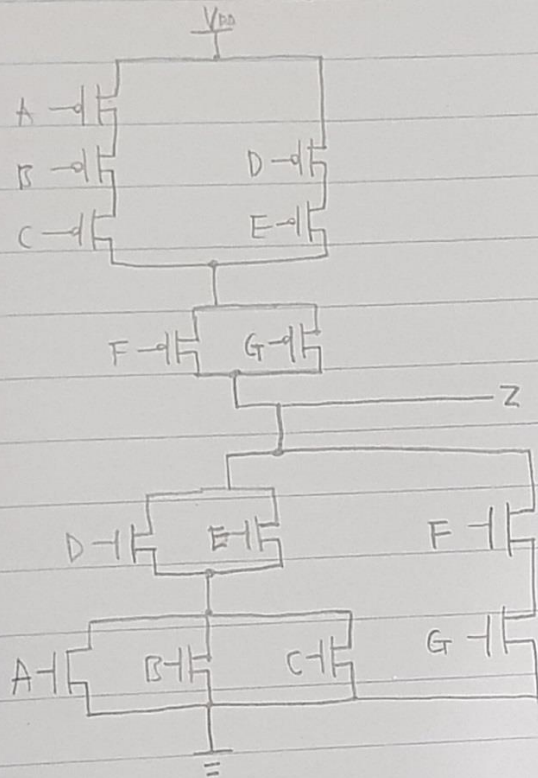 VDD
A
B
D
C
E
F
G
Z
D
E
F
A
B
C
G